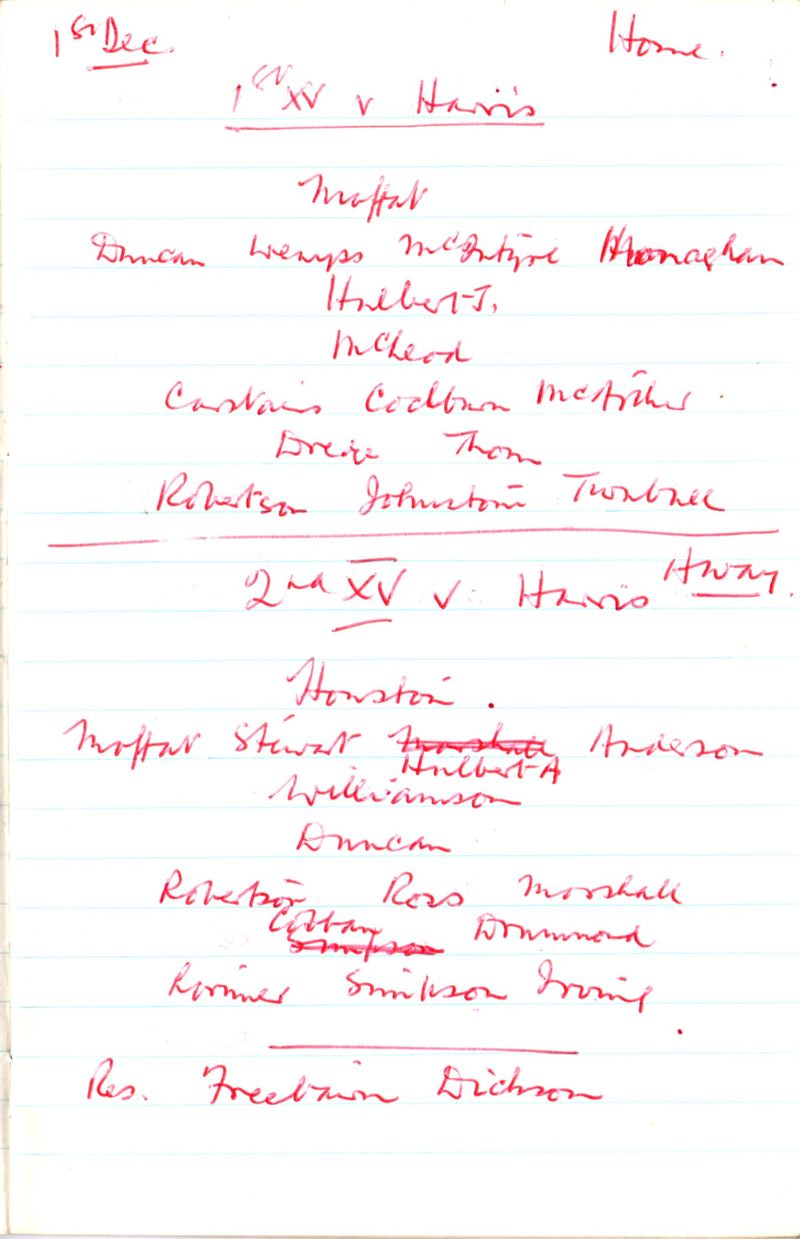 1st Dec. Home.
1st XV v Harris
Moffat
Duncan Wemyss McIntyre Monaghan
Hulbert J.
McLeod
Carstairs Cockburn McArthur
Dreize Thom
Robertson Johnstone Turnbull
2nd XV v. Harris Away.
Houston.
Moffat Stewart Marshall Anderson
Hulbert A
Williamson
Duncan
Robertson Ross Marshall
Cobban Drummond
Simpson
Lorimer Simpson Irving
Res. Freebairn Dickson